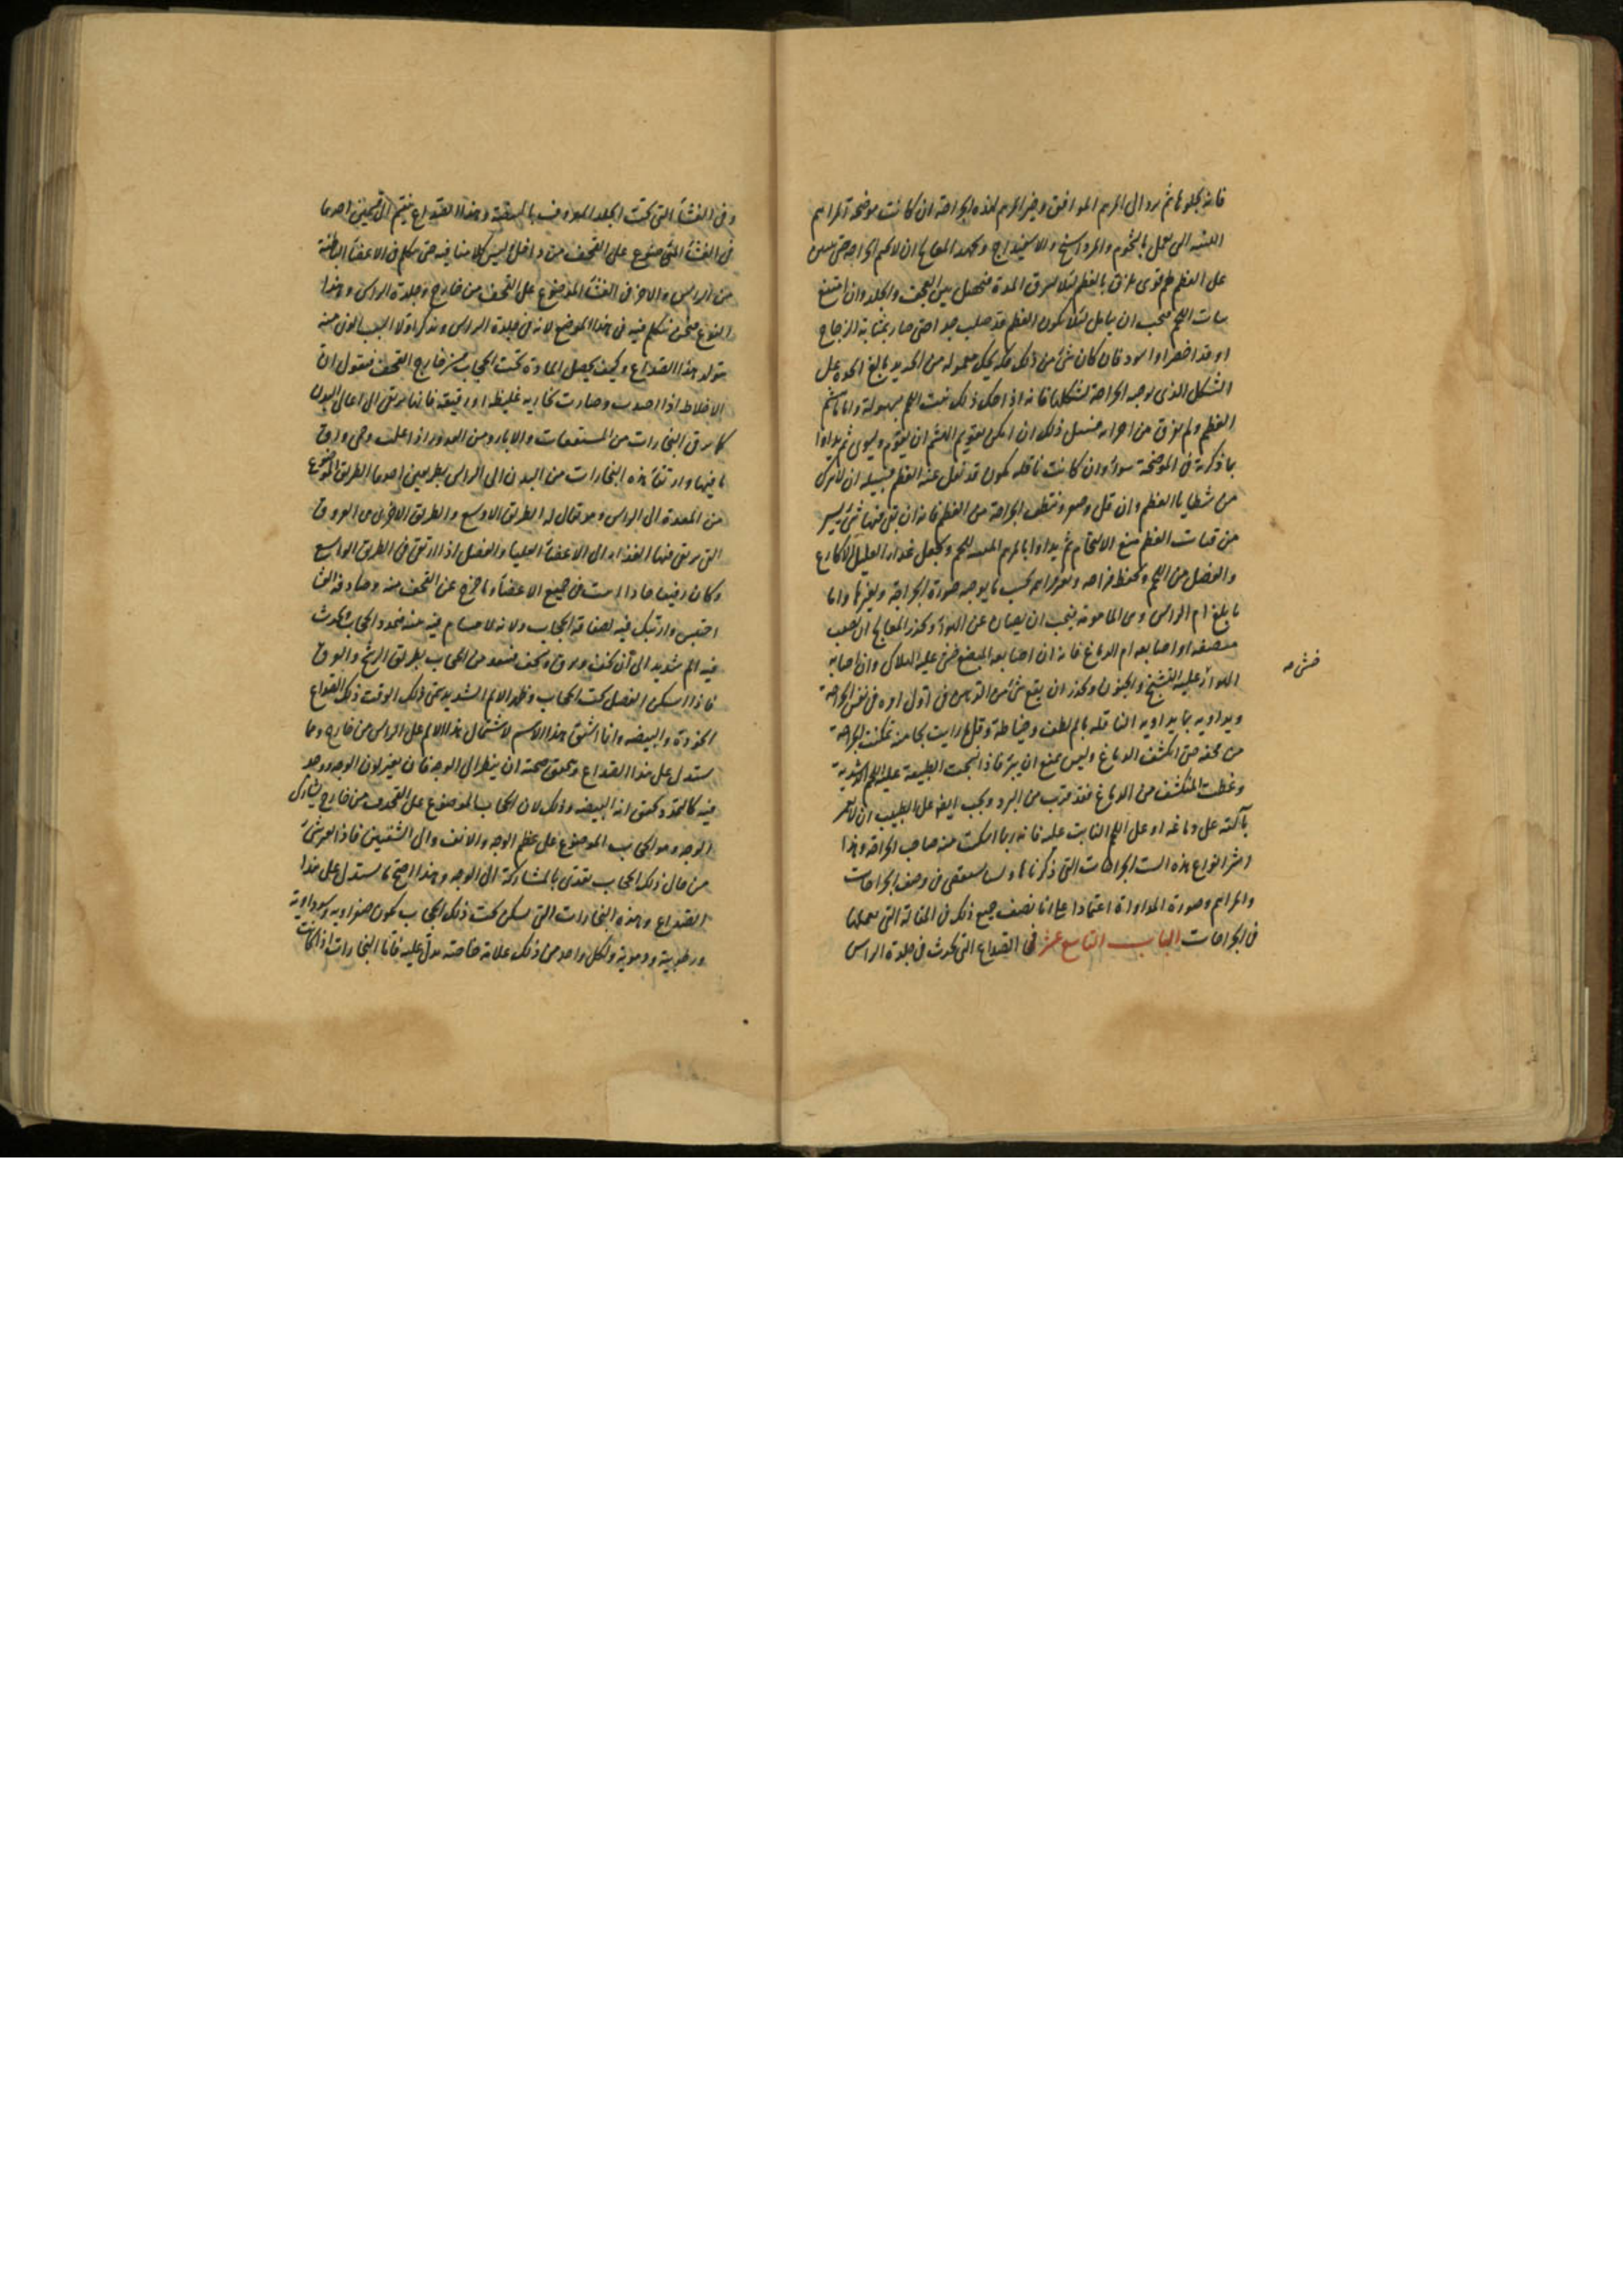 فانه يجلوها ثم يرد الى المرهم الموافق وخير المراهم لهذه الجراحة ان كانت موضحة المراهم
اللينة التي تعمل بالشحوم والمرداسنج والاسفيداج وليحذر المعالج ان لا يلحم الجراحة حتى
على العظم لحم قوي ملزق بالعظم لئلا يسرق المدة فتحصل بين القحف والجلد وان امتنع
نبات اللحم فيجب ان يتأمل لئلا يكون العظم قد صلب جدا حتى صار بمثابة الزجاج
او قد اخضر او اسود فان كان شيء من ذلك فكه بحك معموله من الحديد بالغ الحدة على
الشكل الذي توجبه الجراحة لشكلها فانه اذا حك ذلك نبت اللحم بسهولة واما
العظم ولم يفرق من اجزائه فسبيل ذلك ان امكن تقويم الهشم ان يقوم ويسوى ثم يداوا
بما ذكرته في الموضحة سواء وان كانت ناقلة يكون قد نقل عنه العظم فسبيله ان لا يترك
من شظايا العظم وان قل وصغر وتنظف الجراحة من العظم فانه ان بقي فيها شيء يسير
من فتات العظم منع الالتحام ثم يداوا بالمرهم المنبت للحم ويجعل غذاء العليل الاكارع
والفضل من اللحم ويحفظ مزاجه بحسب ما يوجبه صورة الجراحة وتغيرها واما
ما بلغ ام الراس وهي المامومة فيجب ان يصان عن الهواء ويحذر المعالج ان يصيب
مبضعه او اصابعه ام الدماغ فانه ان اصابه المبضع خشي عليه الهلاك وان اصابه
الهواء عليه التشنج والجنون ويحذر ان يقع شيء من الدواء في نفس الجراحة
ويداويه بما يداويه الناقلة بالم لطف وحياطة وقل ما رايت تمكنت الجراحة
من مخه حتى انكشف الدماغ وليس يمنع ان يبرأ فاذا انتجت الطبيعة عليه اللحم
وغطت المنكشف من الدماغ فقد قرب من البرء ويجب ايضا على الطبيب ان لا
بآلته على دماغه او على اللحم النابت عليه فانه ربما اسكت منه صاحب الجراحة وهذا
انواع هذه الست الجراحات التي ذكرناها في وصف الجراحات
والمراهم وصورة المداواة اعتمادا على انا نصف جميع ذلك في المقالة التي نعملها
في الجراحات الباب التاسع عشر في الصداع التي تحدث في جلدة الراس
وفي الغشاء التي تحت الجلد المعروف بالبيضة وهذا الصداع ينقسم الى قسمين احدهما
في الغشاء الموضوع على القحف من داخل وليس كلامنا فيه حتى نتكلم في الاعضاء الباطنة
من الراس والاخر في الغشاء الموضوع على القحف من خارج وجلدة الراس وهذا
النوع فنحن نتكلم فيه في هذا الموضع لانه في جلدة الراس ونذكر اولا السبب الذي منه
يتولد هذا الصداع وكيف تحصل المادة تحت الحجاب من خارج القحف فنقول ان
الاخلاط اذا وصارت بخارية غليظة او رقيقة فانها ترتقي الى اعالي البدن
كما ترقى البخارات من المستنقعات والابار ومن القدور اذا اغلت وحمي ورق
ما فيها وارتقاء هذه البخارات من البدن الى الراس بطريقين احدهما الطريق الموضوع
من المعدة الى الراس وهو يقال له الطريق الاوسع والطريق الاخرى هي العروق
التي يرتقي فيها الغذاء الى الاعضاء العليا والفضل اذا ارتقى في الطريق الواسع
وكان رقيقا حادا في جميع الاعضاء وما خرج عن القحف منه وصادفه الغشاء
احتبس وارتبك فيه لصفاقة الحجاب ولانه لا مسام فيه منه فيمدد الحجاب فيحدث
فيه الم شديد الى ان يخف ويرق ويخف فينفد من الحجاب بطريق الرشح والعرق
فاذا سكن الفضل تحت الحجاب وظهر الالم الشديد سمي ذلك الوقت ذلك الصداع
الخوذة والبيضة وانما اشتق هذا الاسم لاشتمال هذا الالم على الراس من خارج ومما
يستدل على هذا الصداع وتحقق صحته ان ينظر الى الوجه فان تغير لون الوجه ووجد
فيه كالتمدد وتحقق انه البيضة وذلك لان الحجاب الموضوع على القحف من خارج يشارك
الوجه وهو الحجاب الموضوع على عظم الوجه والانف والى الشفتين فاذا عرض شيء
من حال ذلك الحجاب تعدى بالمشاركة الى الوجه وهذا اصح ما يستدل على هذا
الصداع وهذه البخارات التي تسكن تحت ذلك الحجاب تكون صفراوية وسوداوية
ورطوبية ودموية ولكل واحد من ذلك علامة خاصة يدل عليه فاما البخارات اذا كانت